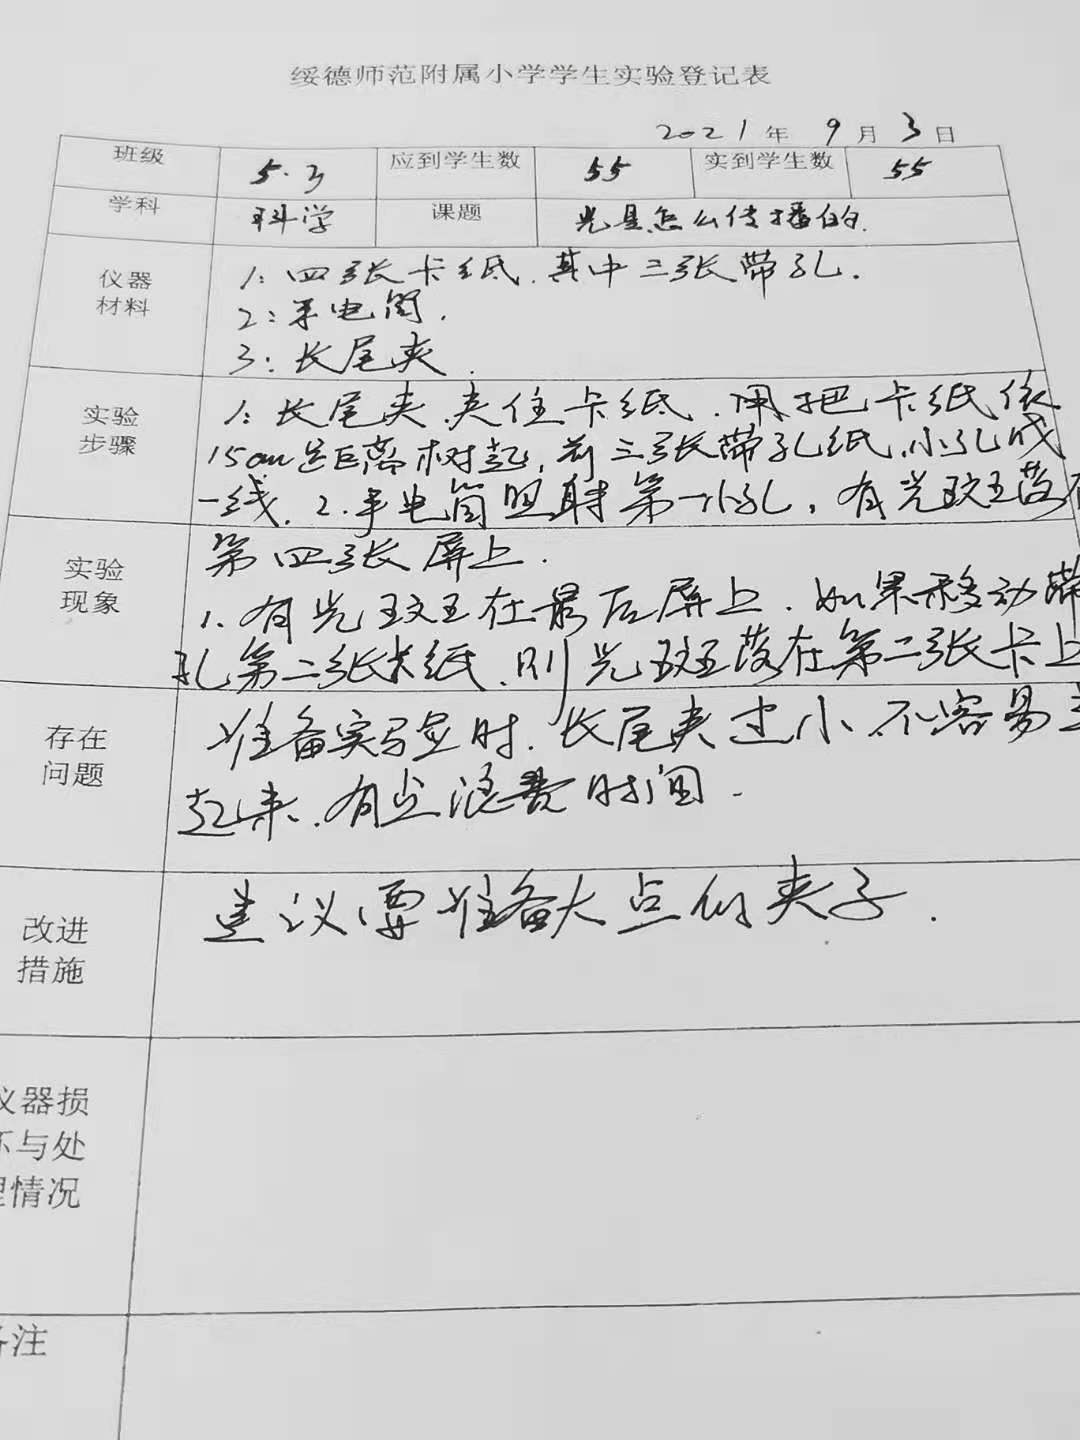 绥德师范附属小学学生实验登记表
2021年9月3日
班级 5.3 应到学生数 55 实到学生数 55
学科 科学 课题 光是怎么传播的.
仪器材料
1: 四张卡纸.其中三张带孔.
2: 手电筒.
3: 长尾夹.
实验步骤
1: 长尾夹夹住卡纸.用把卡纸依
15cm 距离树起,前三张带孔纸,小孔成
一线. 2.手电筒照射第一小孔,有光斑落在
第四张屏上.
实验现象
1.有光斑在最后屏上.如果移动带
孔第二张卡纸.则光斑落在第二张卡上
存在问题
准备实验时.长尾夹过小不容易
起来.有点浪费时间.
改进措施
建议要准备大点的夹子.
仪器损
坏与处
理情况
备注